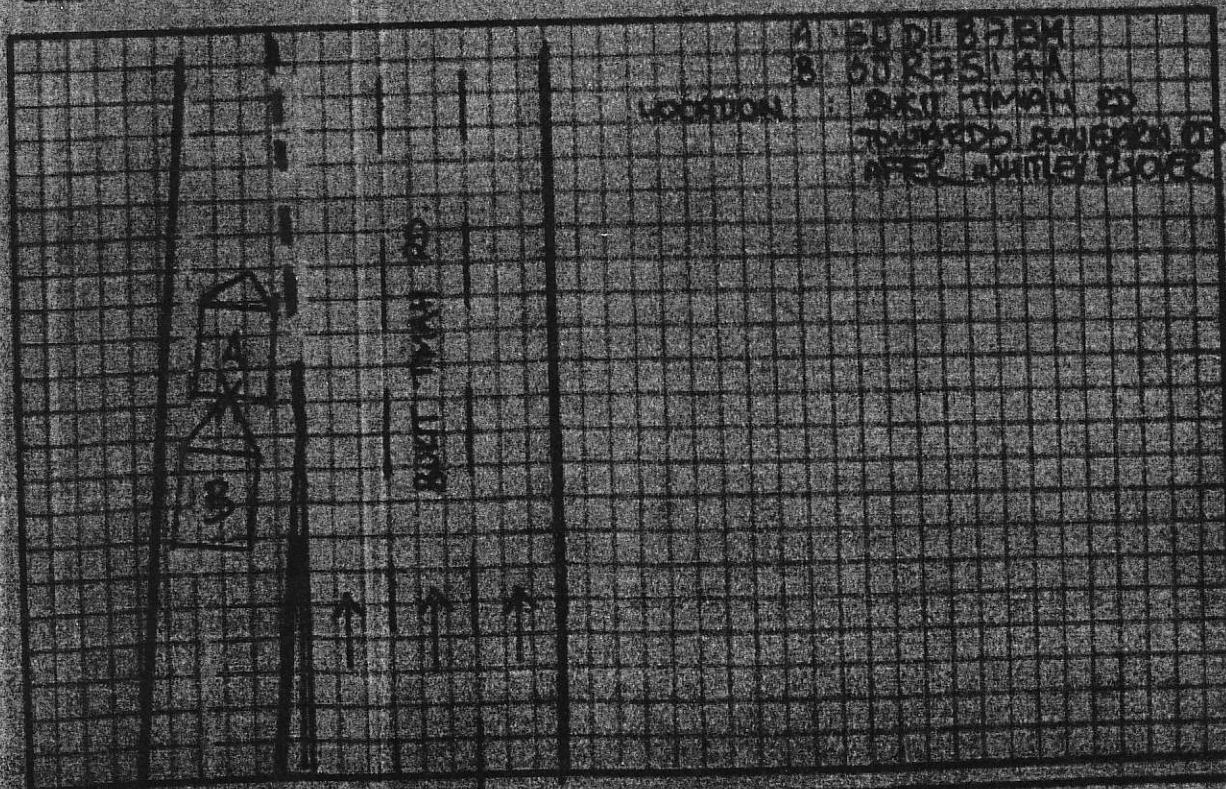 A : SJD1187BM
B : SJR7514A
LOCATION : BUKIT TIMAH RD
TOWARDS DUNEARN RD
AFTER WHITLEY FLYOVER
BUKIT TIMAH RD
A
B